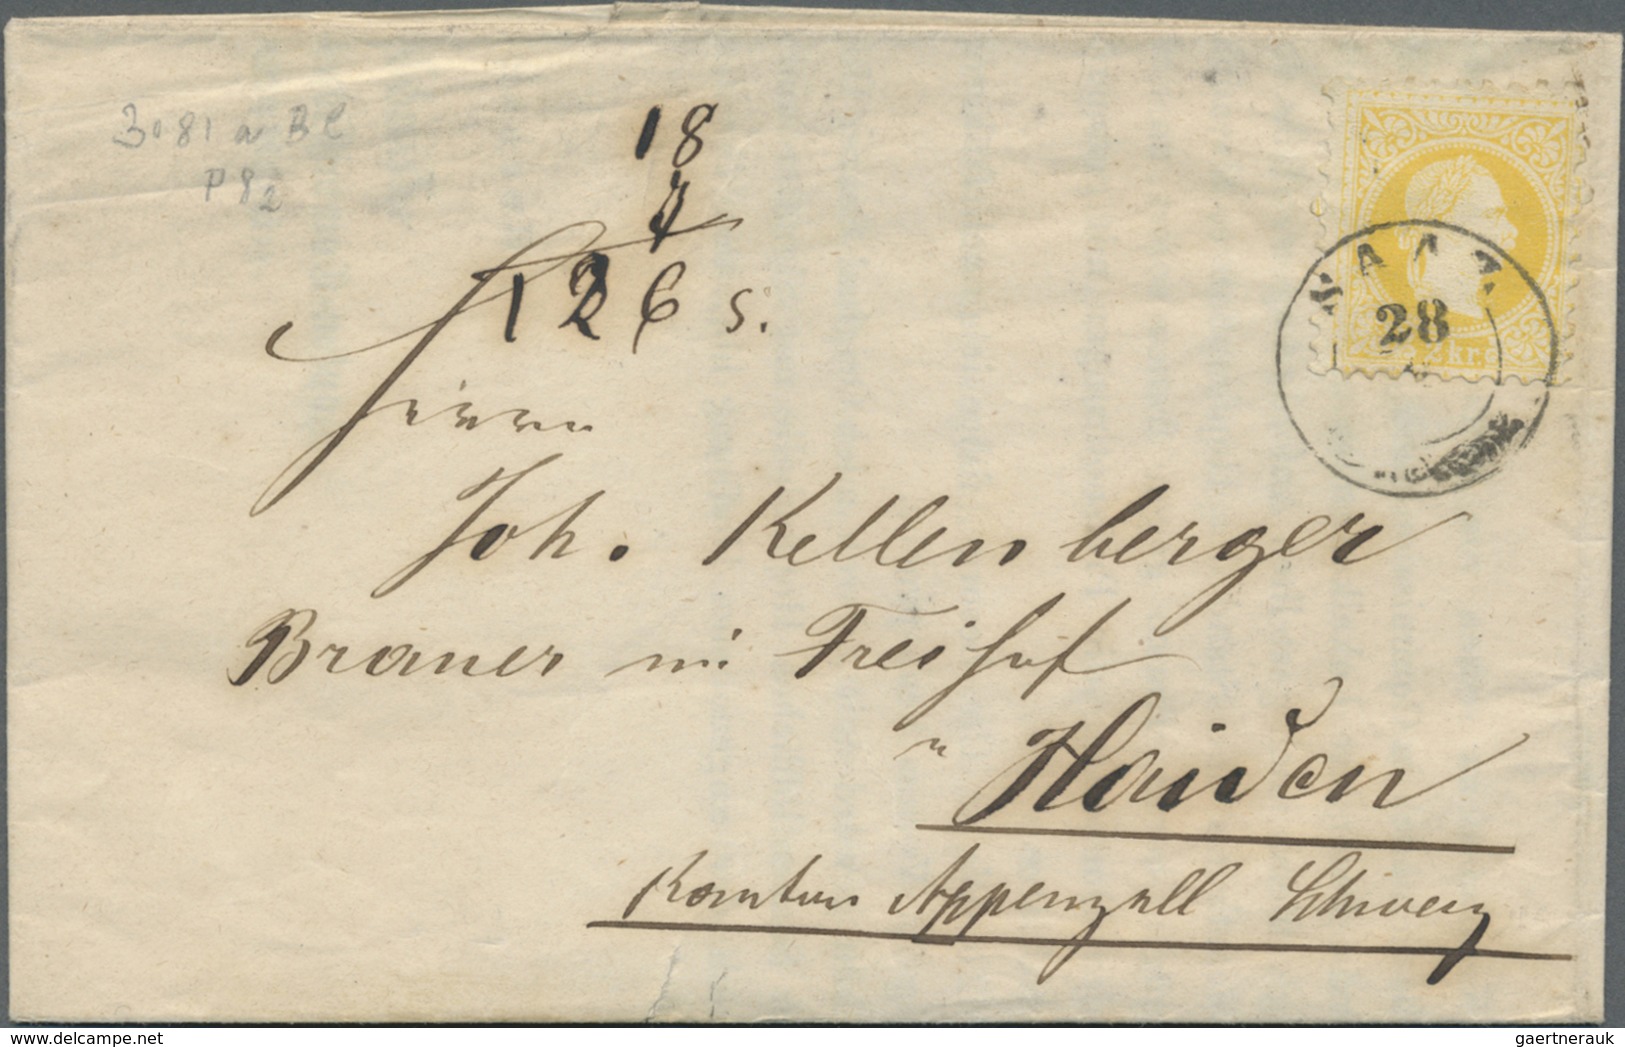 3081 a Bl
P 82
18
7
126 s.
SAAZ
28
2kr
Herrn
Joh. Kellenberger
Brauer im Freihof
in Haiden
Kanton Appenzell Schweiz
gaertnerauk